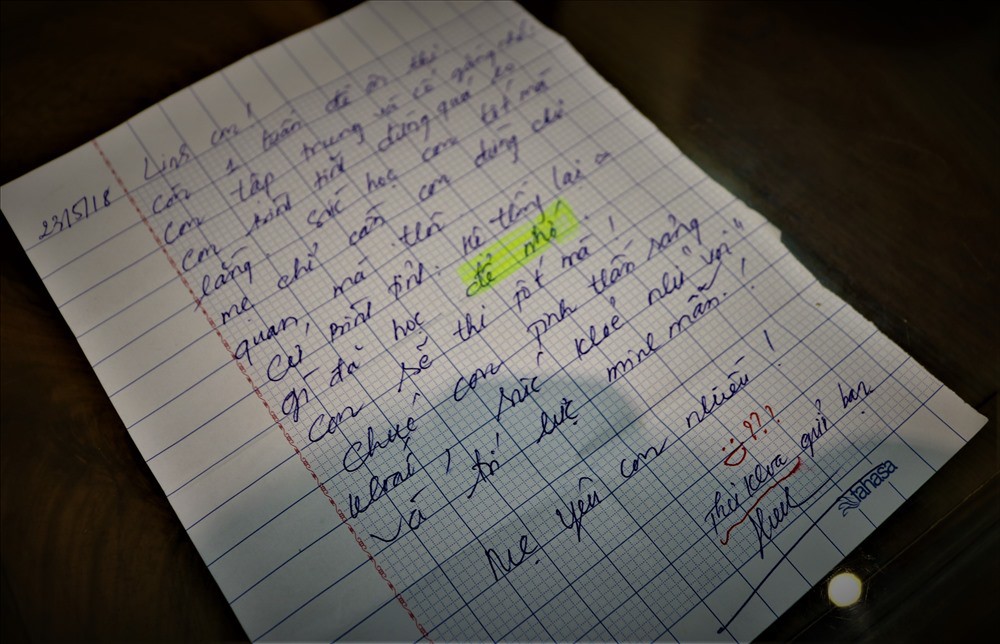 23/5/18
Linh con!
Còn 1 tuần để ôn thi
Con tập trung và cố gắng nhé.
Con bình tĩnh đừng quá lo
lắng. Sức học con tốt mà
mẹ chỉ cần con đừng chủ
quan mà thôi.
Cứ bình tĩnh. Hệ thống lại
gì đã học để nhớ.
Con sẽ thi tốt mà!
Chúc con tinh thần sảng
khoái, sức khoẻ như "voi"
và trí lực minh mẫn!
Mẹ yêu con nhiều!
???
Thời khoá gửi bạn
tanasa